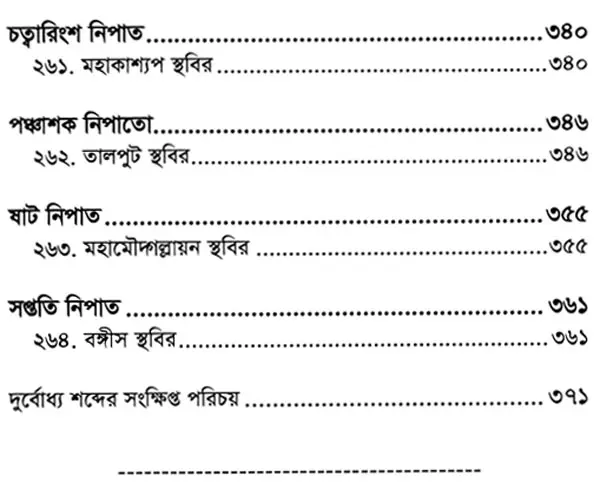 চত্বারিংশ নিপাত.....................................................................৩৪০
২৬১. মহাকাশ্যপ স্থবির.........................................................৩৪০
পঞ্চাশক নিপাতো....................................................................৩৪৬
২৬২. তালপুট স্থবির..............................................................৩৪৬
ষাট নিপাত............................................................................৩৫৫
২৬৩. মহামৌদ্গল্লায়ন স্থবির ..................................................৩৫৫
সপ্ততি নিপাত ........................................................................৩৬১
২৬৪. বঙ্গীস স্থবির................................................................৩৬১
দুর্বোধ্য শব্দের সংক্ষিপ্ত পরিচয় ..................................................৩৭১